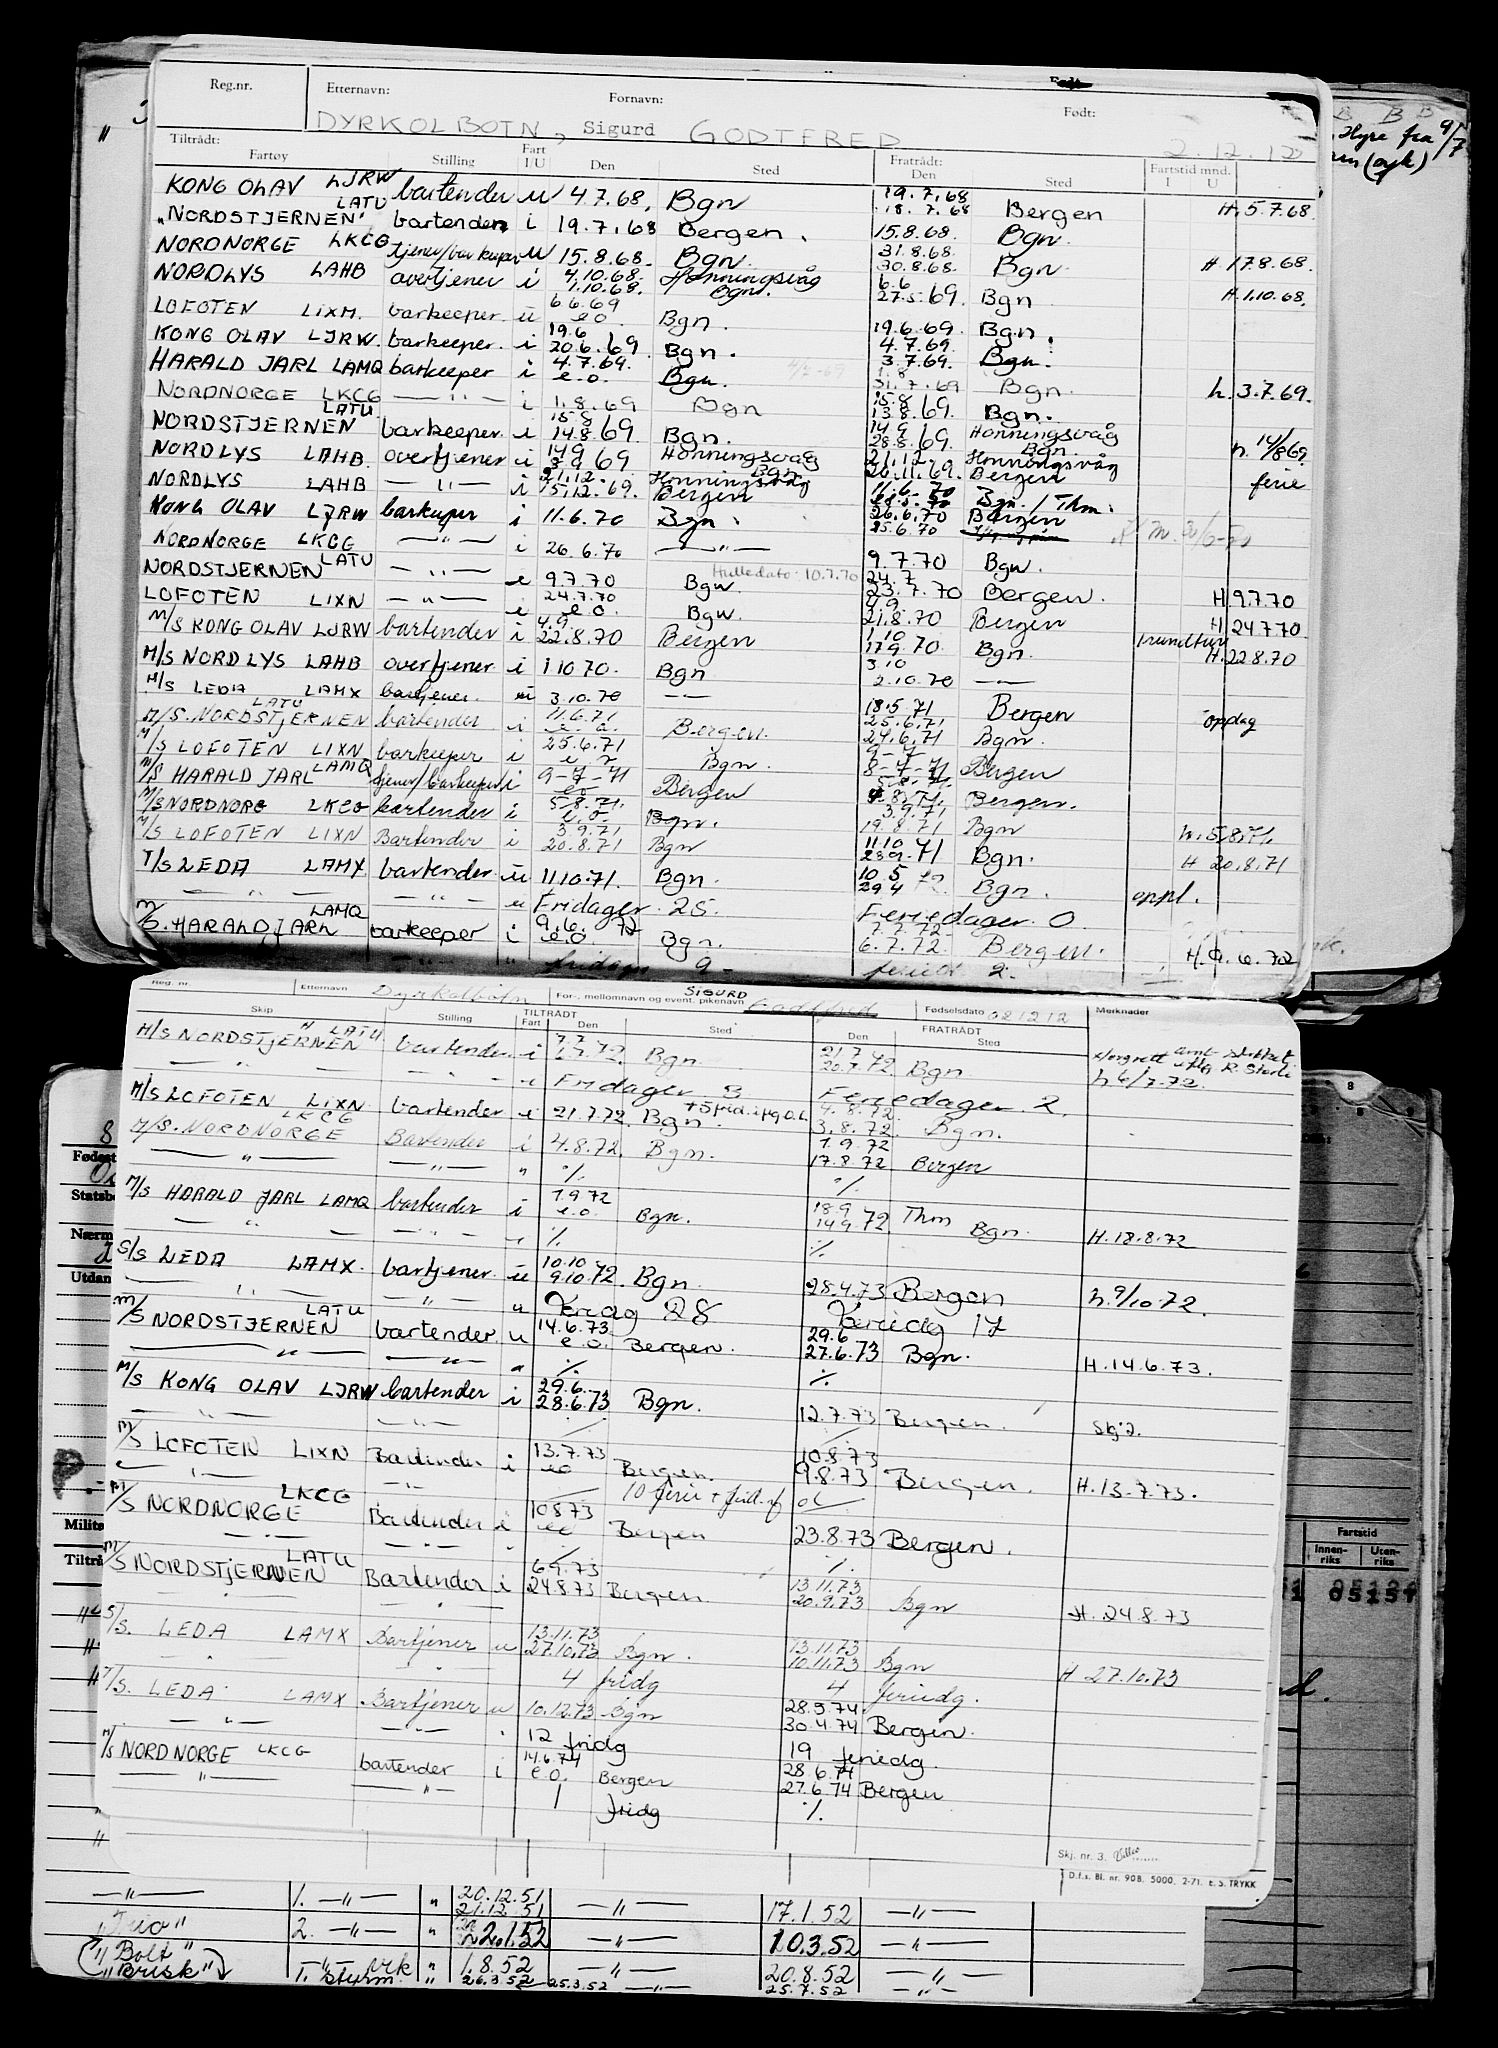 Reg.nr. Etternavn: Fornavn: Født:
DYRKOLBOTN, Sigurd GODTFRED 2.12.12
Tiltrådt: Fratrådt: Fartstid mnd.
Fartøy Stilling Fart I/U Den Sted Den Sted I U
KONG OLAV LJRW bartender u 4.7.68. Bgn 19.7.68 18.7.68 Bergen H. 5.7.68.
"NORDSTJERNEN" LATU bartender i 19.7.68 Bergen. 15.8.68. Bgn.
NORDNORGE LKCG tjener/barkeeper u 15.8.68. Bgn. 31.8.68. 30.8.68. Bgn. H. 17.8.68.
NORDLYS LAHB overtjener i 4.10.68. 1.10.68. Honningsvåg Bgn. 6.6 27.5.69. Bgn H. 1.10.68.
LOFOTEN LIXM. barkeeper. u 6.6.69 e.o. Bgn. 19.6.69. Bgn.
KONG OLAV LJRW. barkeeper. i 19.6 20.6.69. Bgn. 4.7.69. 3.7.69. Bgn.
HARALD JARL LAMQ barkeeper i 4.7.69. e.o. Bgn. 1.8 31.7.69 Bgn. h. 3.7.69.
NORDNORGE LKCG —"— i 1.8.69 Bgn 15.8 13.8.69. Bgn.
NORDSTJERNEN LATU barkeeper. i 15.8 14.8.69 Bgn. 14.9 28.8.69. Honningsvåg Bgn. h. 14/8 69.
NORDLYS LAHB. overtjener i 14.9 3.9.69 Honningsvåg Bgn. 21.12. 26.11.69. Honningsvåg Bergen ferie
NORDLYS LAHB —"— i 21.12. 15.12.69. Honningsvåg Bergen 11.6-70 Bgn. / Thm.
KONG OLAV LJRW barkeeper i 11.6.70 Bgn. 26.6.70 25.6.70 Bergen
NORDNORGE LKCG —"— i 26.6.70 —"— 9.7.70 Bgn.
NORDSTJERNEN LATU —"— i 9.7.70 Bgn Hulledato: 10.7.70 24.7 23.7.70 Bergen. H 9.7.70
LOFOTEN LIXN —"— i 24.7.70 e.o. Bgn 4.9. 21.8.70 Bergen H 24.7.70
M/S KONG OLAV LJRW bartender i 4.9. 22.8.70 Bergen 1.10 17.9.70 Bgn. 1 rundtur H. 22.8.70
M/S NORDLYS LAHB overtjener i 1.10.70. Bgn 3.10 2.10.70 — —
M/S LEDA LAMX bartjener. u 3.10.70 — — 18.5.71 Bergen opplag
M/S. NORDSTJERNEN LATU bartender i 11.6.71 e.o. Bergen. 25.6.71 24.6.71 Bgn.
M/S LOFOTEN LIXN barkeeper i 25.6.71 Bgn. 9-7- 8-7-71 Bergen
M/S HARALD JARL LAMQ tjener/barkeeper i 9-7-71 eo Bergen 5.8.71. 4.8.71. Bergen.
M/S NORDNORG LKCG bartender i 5.8.71. e.o. Bgn. 3.9.71 19.8.71 Bgn h. 5.8.71.
M/S LOFOTEN LIXN Bartender i 3.9.71 20.8.71 Bgn 11.10 23.9.71 Bgn. H 20.8.71
T/S LEDA LAMX. bartender. u 11.10.71. Bgn. 10.5 29.4 72. Bgn. oppl.
—"— —"— u Fridager. 25. Feriedager. 0
M/S. HARALD JARL LAMQ barkeeper i 9.6.72 e.o. Bgn. 7.7.72. 6.7.72. Bergen. H. 9.6.72
—"— " fridager 9- feried 2.
Reg. nr Etternavn Dyrkolbotn For-, mellomnavn og event. pikenavn SIGURD Godtfred Fødselsdato 021212 Merknader
Skip Stilling TILTRÅDT Fart Den Sted FRATRÅDT Den Sted
M/S NORDSTJERNEN LATU bartender i 7.7.72 Bgn 21.7.72 20.7.72 Bgn h 6/7.72.
—"— —"— Fridager 8 Feriedager 2.
M/S LOFOTEN LIXN bartender i 21.7.72 Bgn. 4.8.72. 3.8.72. Bgn.
M/S. NORDNORGE LKCG Bartender i 4.8.72. Bgn. 1.9.72 17.8.72 Bergen
—"— —"— " % %
M/S HARALD JARL LAMQ bartender i 1.9.72 e.o. Bgn. 18.9 14.9.72 Thm Bgn. H. 18.8.72
—"— —"— % %
S/S LEDA LAMX. bartjener. u 10.10 9.10.72. Bgn. 28.4.73 Bergen h. 9/10.72.
—"— —"— " Feriedg 28 Feriedg 17
M/S NORDSTJERNEN LATU bartender. u 14.6.73. e.o. Bergen. 29.6 27.6.73 Bgn. H. 14.6.73.
—"— —"— " % %
M/S KONG OLAV LJRW bartender i 29.6. 28.6.73 Bgn. 12.7.73 Bergen. Skj2.
—"— —"—
M/S LOFOTEN LIXN Bartender i 13.7.73 eo Bergen. 10.8.73 9.8.73 Bergen. H. 13.7.73.
10 ferie + frid.
M/S NORDNORGE LKCG Bartender i 10.8.73 eo Bergen 23.8.73 Bergen.
—"— —"— % %
M/S NORDSTJERNEN LATU Bartender i 6.9.73 24.8.73 Bergen 13.11.73 20.9.73 Bgn H. 24.8.73
S/S. LEDA LAMX Bartjener u 13.11.73 27.10.73 Bgn. 13.11.73 10.11.73 Bgn H 27.10.73
4 fridg 4 feriedg.
M/S. LEDA LAMX Bartjener u 10.12.73 Bgn 28.5.74. 30.4.74 Bergen.
—"— —"— 12 fridg 19 feriedg.
M/S NORDNORGE LKCG bartender i 14.6.74 e.o. Bergen 28.6.74 27.6.74 Bergen
—"— —"— 1 fridg %
Skj. nr. 3,
D.f.s. Bl. nr. 908, 5000, 2-71. E. S. TRYKK
—"— 1. —"— " 20.12.51 21.12.51 —"— 17.1.52 —"—
"Trio" 2. —"— " 22.1.52 —"— 10.3.52 —"—
"Bolt" " 1.8.52 —"— 20.8.52 —"—
"Brisk" 1. Styrm. " 26.3.52 25.3.52 —"— 25.7.52 —"—
Hyre fra 9/7
Fødest
Statsbo
Nærm
Utdan
Milita
Tiltrå
Fartstid
Innenriks Utenriks
8